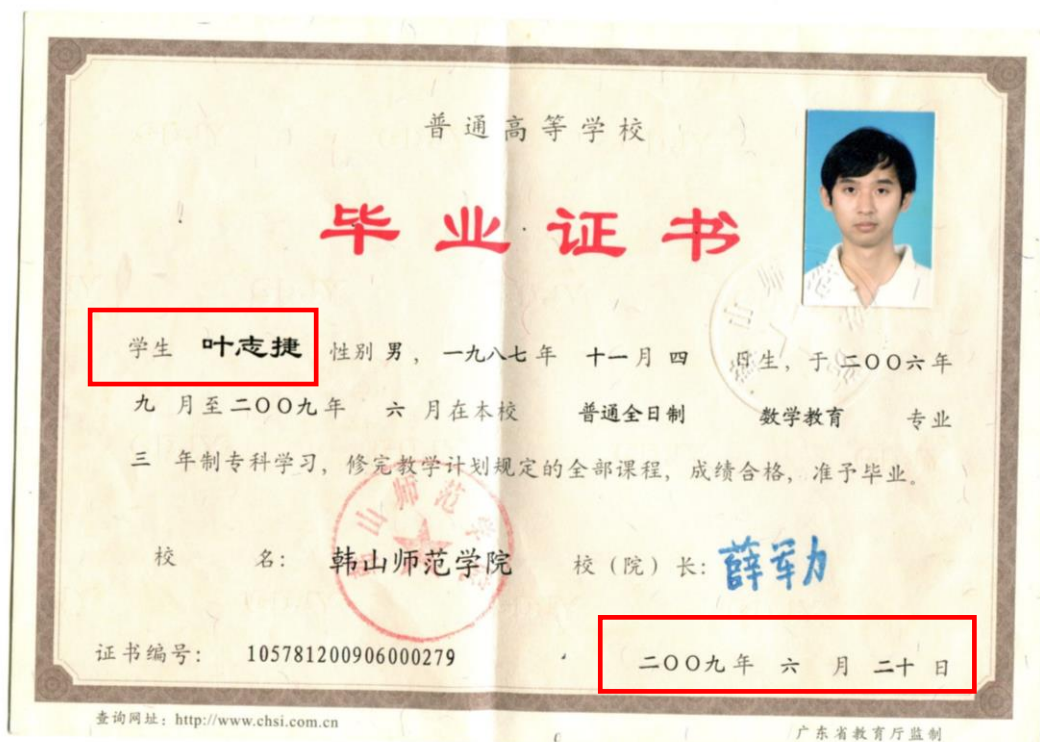 普通高等学校
毕业证书
学生 叶志捷 性别 男，一九八七年 十一月 四 日生，于 二〇〇六年
九 月至 二〇〇九年 六 月在本校 普通全日制 数学教育 专业
三 年制专科学习，修完教学计划规定的全部课程，成绩合格，准予毕业。
校 名：韩山师范学院 校（院）长：薛军力
证书编号：105781200906000279 二〇〇九年 六 月 二十 日
查询网址：http://www.chsi.com.cn 广东省教育厅监制